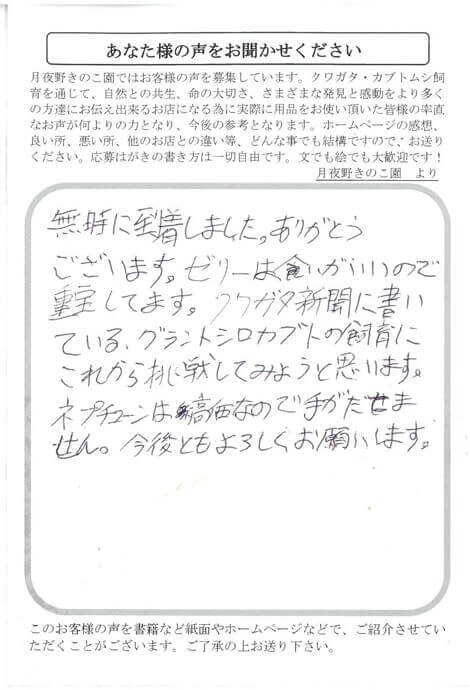 あなた様の声をお聞かせください
月夜野きのこ園ではお客様の声を募集しています。クワガタ・カブトムシ飼
育を通じて、自然との共生、命の大切さ、さまざまな発見と感動をより多く
の方達にお伝え出来るお店になる為に実際に用品をお使い頂いた皆様の率直
なお声が何よりの力となり、今後の参考となります。ホームページの感想、
良い所、悪い所、他のお店との違い等、どんな事でも結構ですので、お送り
ください。応募はがきの書き方は一切自由です。文でも絵でも大歓迎です！
月夜野きのこ園 より
無時に到着しました。ありがとう
ございます。ゼリーは食いがいいので
重宝してます。クワガタ新聞に書い
ている、グラントシロカブトの飼育に
これから挑戦してみようと思います。
ネプチューンは高価なので手がだせま
せん。今後ともよろしくお願いします。
このお客様の声を書籍など紙面やホームページなどで、ご紹介させてい
ただくことがございます。ご了承の上お送り下さい。